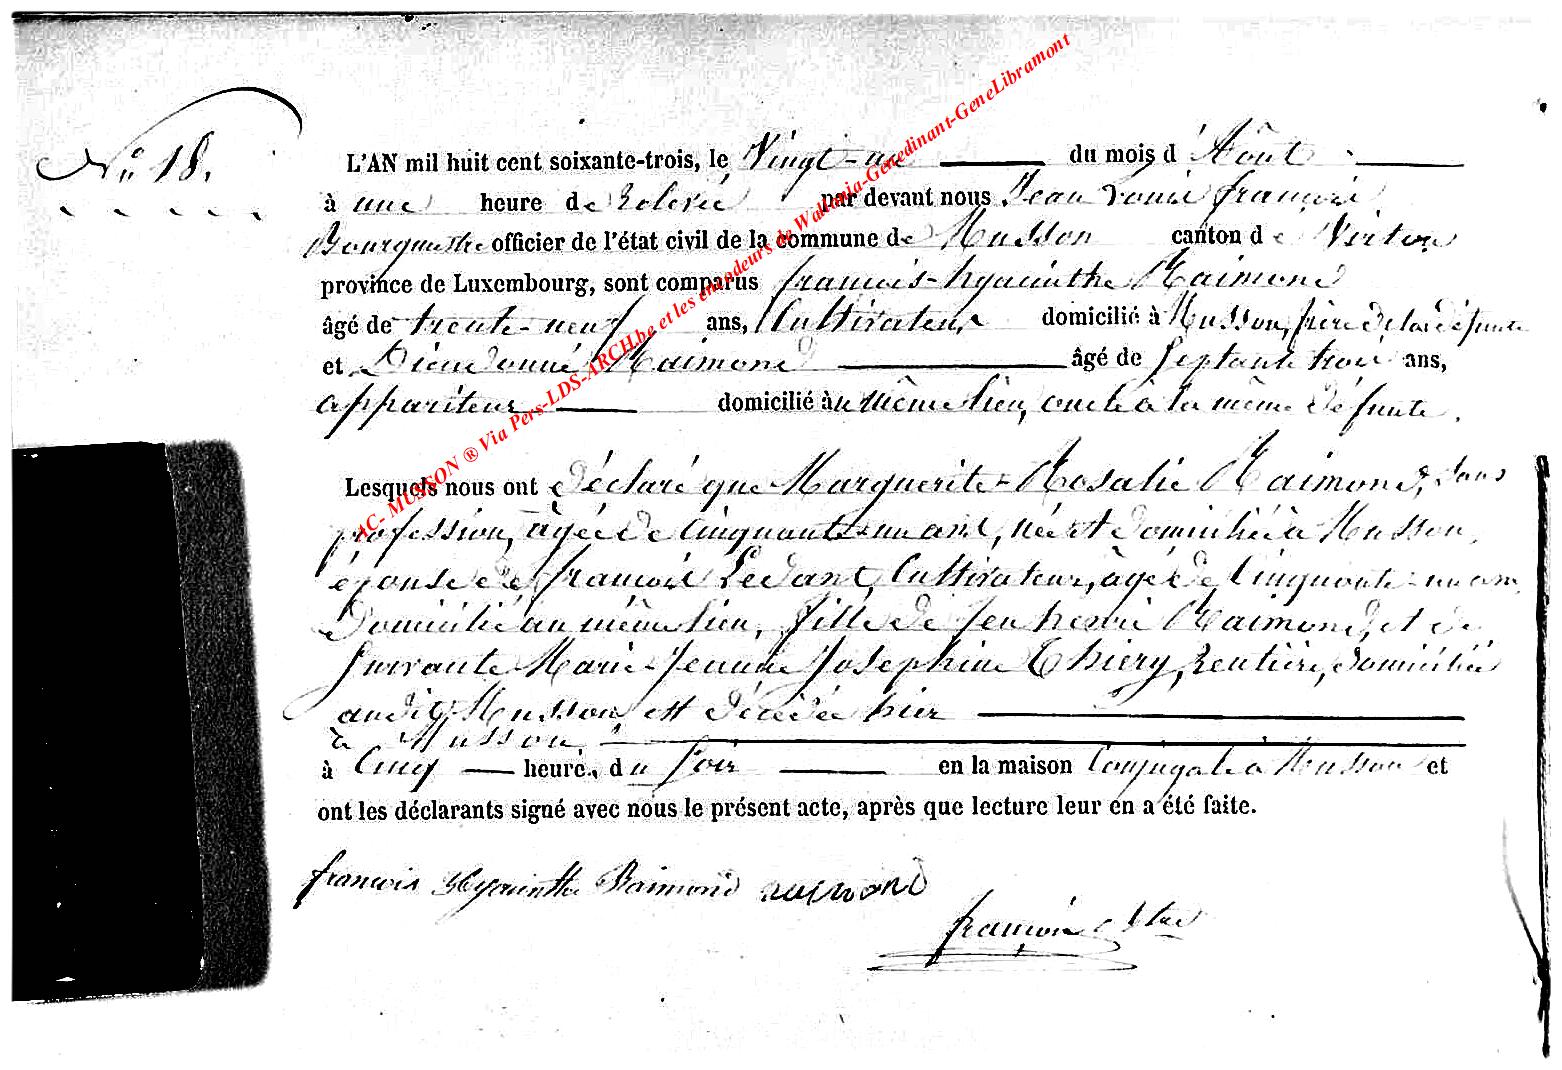 N° 18.
L'AN mil huit cent soixante-trois, le Vingt-un du mois d'Août
à une heure de relevée par devant nous Jean Louis françois
Bourgmestre officier de l'état civil de la commune de Musson canton de Virton
province de Luxembourg, sont comparus françois-hyacinthe Raimond
âgé de trente-neuf ans, Cultivateur domicilié à Musson, frère de la défunte
et Dieudonné Raimond âgé de Septante trois ans,
appariteur domicilié au même lieu, oncle à la même défunte.
Lesquels nous ont déclaré que Marguerite-Rosalie Raimond, sans
profession, âgée de Cinquante-un ans, née et domiciliée à Musson,
épouse de françois Ledant, Cultivateur, âgé de Cinquante-un ans,
Domicilié au même lieu, fille de feu henri Raimond, et de
survivante Marie-Jeanne Josephine Thiery, Rentière, domiciliée
audit Musson est décédée hier
à Musson,
à Cinq heures, du soir en la maison Conjugale à Musson et
ont les déclarants signé avec nous le présent acte, après que lecture leur en a été faite.
francois Hyacinthe Raimond raimond
françois
AC- MUSSON ® Via Pers-LDS-ARCHbe et les encodeurs de Wallonia-Genedinant-GeneLibramont